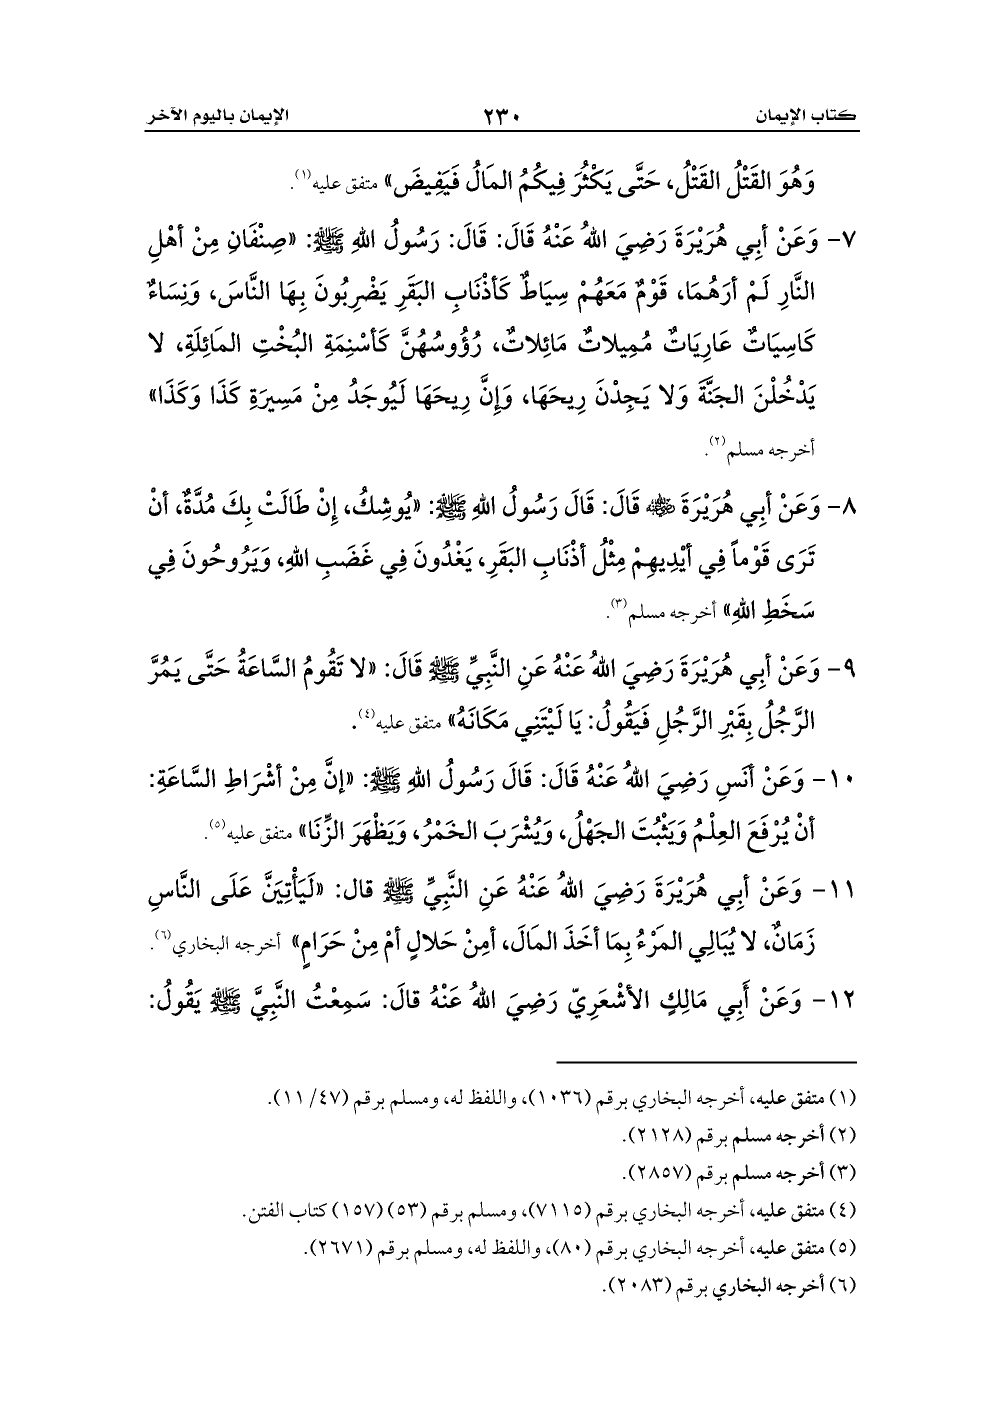 كتاب الإيمان ٢٣٠ الإيمان باليوم الآخر
وَهُوَ القَتْلُ القَتْلُ، حَتَّى يَكْثُرَ فِيكُمُ المَالُ فَيَفِيضَ» متفق عليه(١).
٧- وَعَنْ أبِي هُرَيْرَةَ رَضِيَ اللهُ عَنْهُ قَالَ: قَالَ: رَسُولُ اللهِ ﷺ: «صِنْفَانِ مِنْ أهْلِ
النَّارِ لَمْ أرَهُمَا، قَوْمٌ مَعَهُمْ سِيَاطٌ كَأذْنَابِ البَقَرِ يَضْرِبُونَ بِهَا النَّاسَ، وَنِسَاءٌ
كَاسِيَاتٌ عَارِيَاتٌ مُمِيلاتٌ مَائِلاتٌ، رُؤُوسُهُنَّ كَأسْنِمَةِ البُخْتِ المَائِلَةِ، لا
يَدْخُلْنَ الجَنَّةَ وَلا يَجِدْنَ رِيحَهَا، وَإنَّ رِيحَهَا لَيُوجَدُ مِنْ مَسِيرَةِ كَذَا وَكَذَا»
أخرجه مسلم(٢).
٨- وَعَنْ أبِي هُرَيْرَةَ ﵁ قَالَ: قَالَ رَسُولُ اللهِ ﷺ: «يُوشِكُ، إنْ طَالَتْ بِكَ مُدَّةٌ، أنْ
تَرَى قَوْماً فِي أيْدِيهِمْ مِثْلُ أذْنَابِ البَقَرِ، يَغْدُونَ فِي غَضَبِ اللهِ، وَيَرُوحُونَ فِي
سَخَطِ اللهِ» أخرجه مسلم(٣).
٩- وَعَنْ أبِي هُرَيْرَةَ رَضِيَ اللهُ عَنْهُ عَنِ النَّبِيِّ ﷺ قَالَ: «لا تَقُومُ السَّاعَةُ حَتَّى يَمُرَّ
الرَّجُلُ بِقَبْرِ الرَّجُلِ فَيَقُولُ: يَا لَيْتَنِي مَكَانَهُ» متفق عليه(٤).
١٠- وَعَنْ أنَسٍ رَضِيَ اللهُ عَنْهُ قَالَ: قَالَ رَسُولُ اللهِ ﷺ: «إنَّ مِنْ أشْرَاطِ السَّاعَةِ:
أنْ يُرْفَعَ العِلْمُ وَيَثْبُتَ الجَهْلُ، وَيُشْرَبَ الخَمْرُ، وَيَظْهَرَ الزِّنَا» متفق عليه(٥).
١١- وَعَنْ أبِي هُرَيْرَةَ رَضِيَ اللهُ عَنْهُ عَنِ النَّبِيِّ ﷺ قال: «لَيَأْتِيَنَّ عَلَى النَّاسِ
زَمَانٌ، لا يُبَالِي المَرْءُ بِمَا أخَذَ المَالَ، أمِنْ حَلالٍ أمْ مِنْ حَرَامٍ» أخرجه البخاري(٦).
١٢- وَعَنْ أَبِي مَالِكٍ الأشْعَرِيّ رَضِيَ اللهُ عَنْهُ قالَ: سَمِعْتُ النَّبِيَّ ﷺ يَقُولُ:
(١) متفق عليه، أخرجه البخاري برقم (١٠٣٦)، واللفظ له، ومسلم برقم (١١/٤٧).
(٢) أخرجه مسلم برقم (٢١٢٨).
(٣) أخرجه مسلم برقم (٢٨٥٧).
(٤) متفق عليه، أخرجه البخاري برقم (٧١١٥)، ومسلم برقم (٥٣) (١٥٧) كتاب الفتن.
(٥) متفق عليه، أخرجه البخاري برقم (٨٠)، واللفظ له، ومسلم برقم (٢٦٧١).
(٦) أخرجه البخاري برقم (٢٠٨٣).